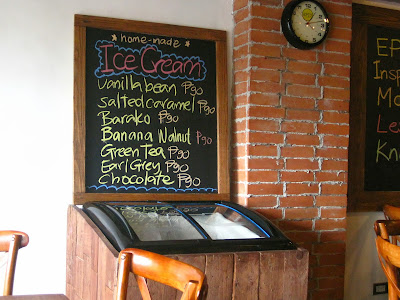 home-made
Ice Cream
Vanilla bean ₱90
salted caramel ₱90
Barako ₱90
Banana Walnut ₱90
Green Tea ₱90
Earl Grey ₱90
Chocolate ₱90
EP
Insp
Mo
Le
Kno